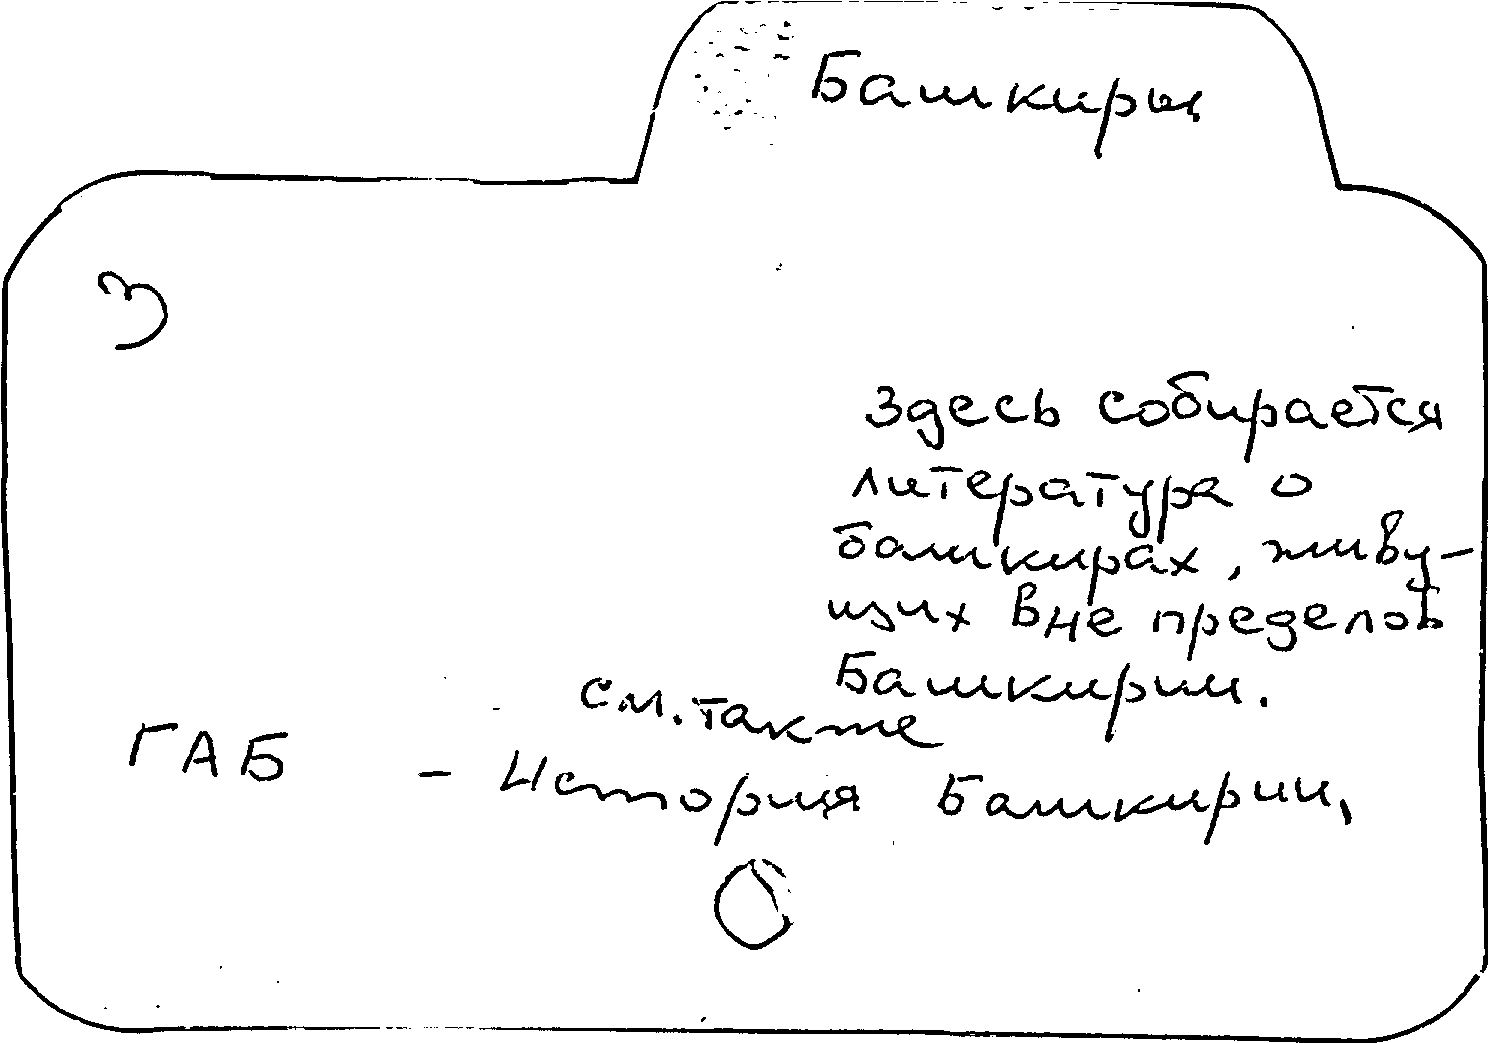 Башкиры
З
Здесь собирается
литература о
башкирах, живу-
щих вне пределов
Башкирии.
см. также
ГАБ - История Башкирии,